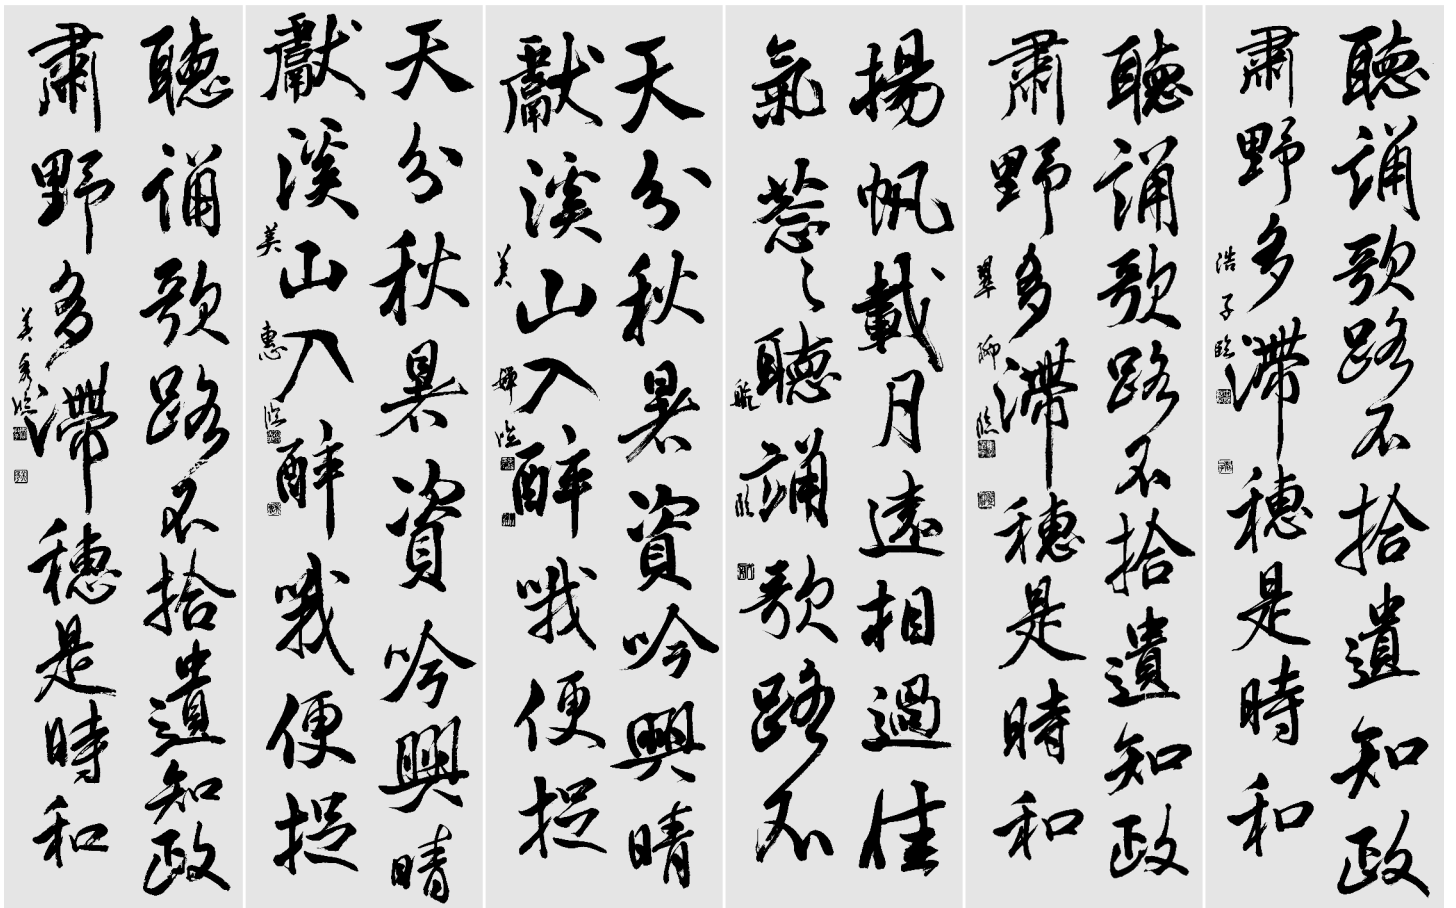 聽誦歌路不拾遺知政
肅野多滯穗是時和
浩子臨
聽誦歌路不拾遺知政
肅野多滯穗是時和
翠柳臨
揚帆載月遠相過佳
氣蔥〻聽誦歌路不
臨
天分秋暑資吟興晴
獻溪山入醉哦便捉
美 臨
天分秋暑資吟興晴
獻溪山入醉哦便捉
美惠臨
聽誦歌路不拾遺知政
肅野多滯穗是時和
美秀臨